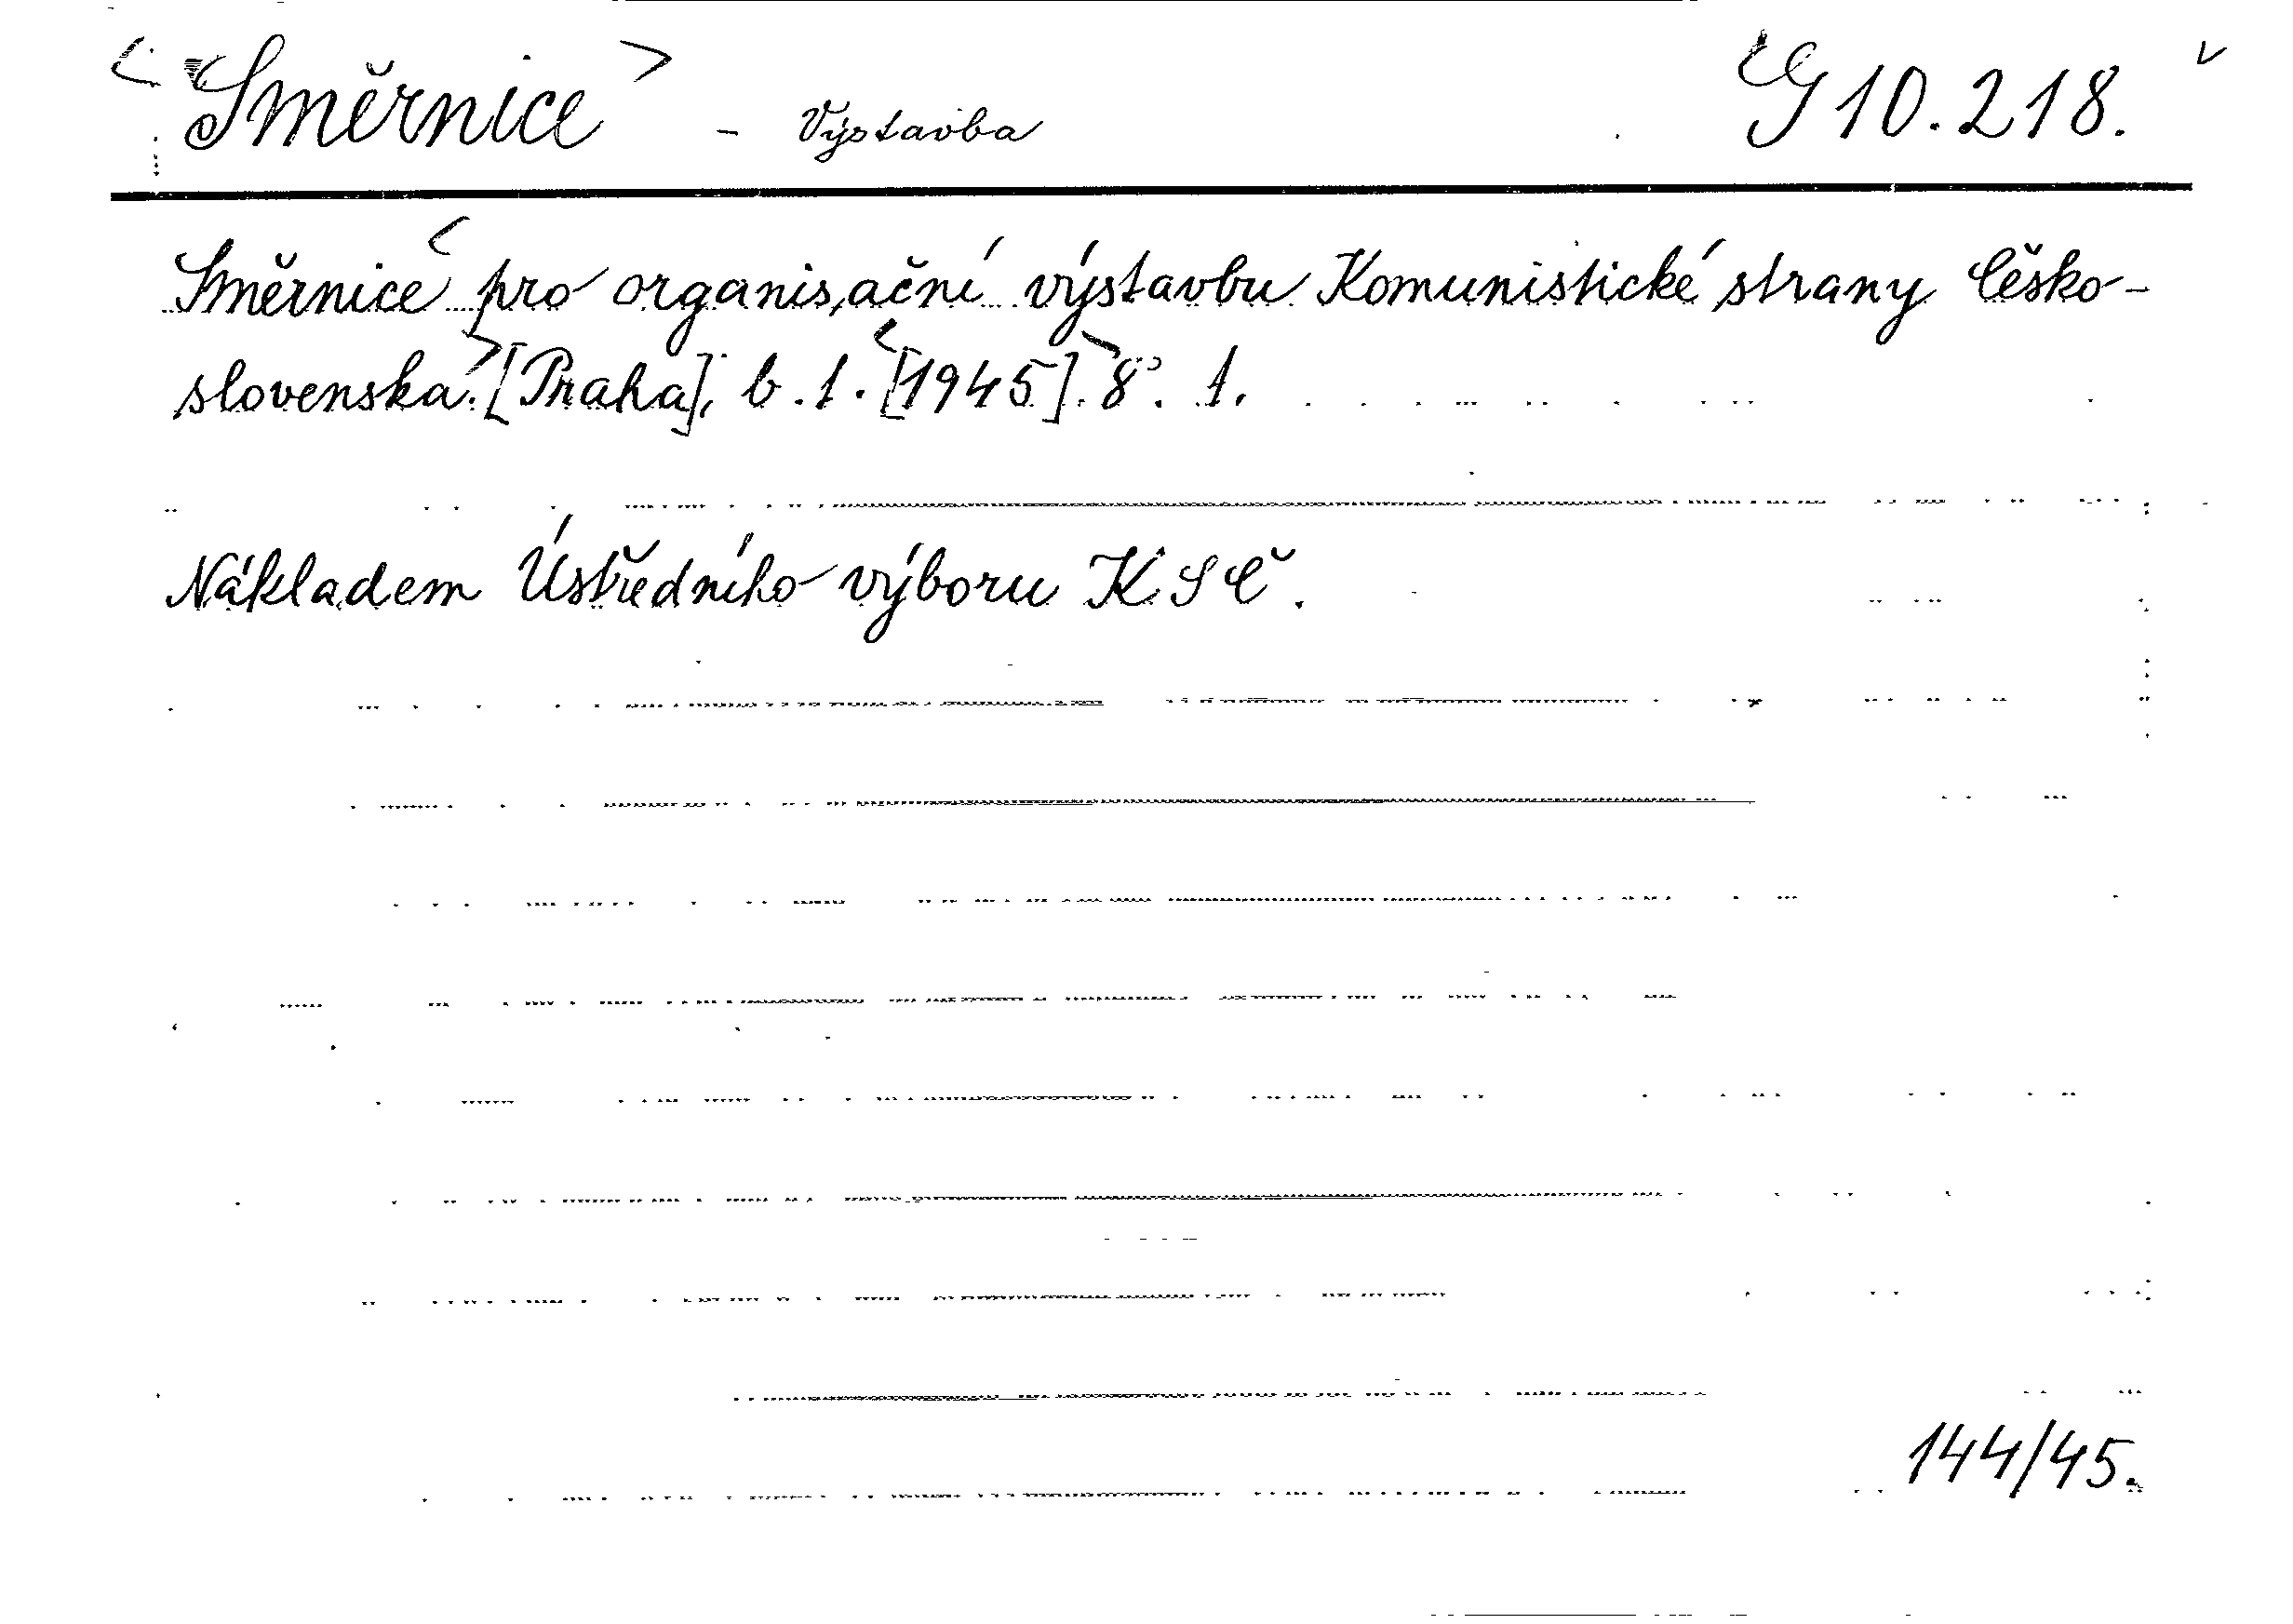 <Směrnice> - Výstavba G 10.218.
Směrnice pro organisační výstavbu Komunistické strany Česko-
slovenska. [Praha], b.t. [1945]. 8°. 1.
Nákladem Ústředního výboru KSČ.
144/45.